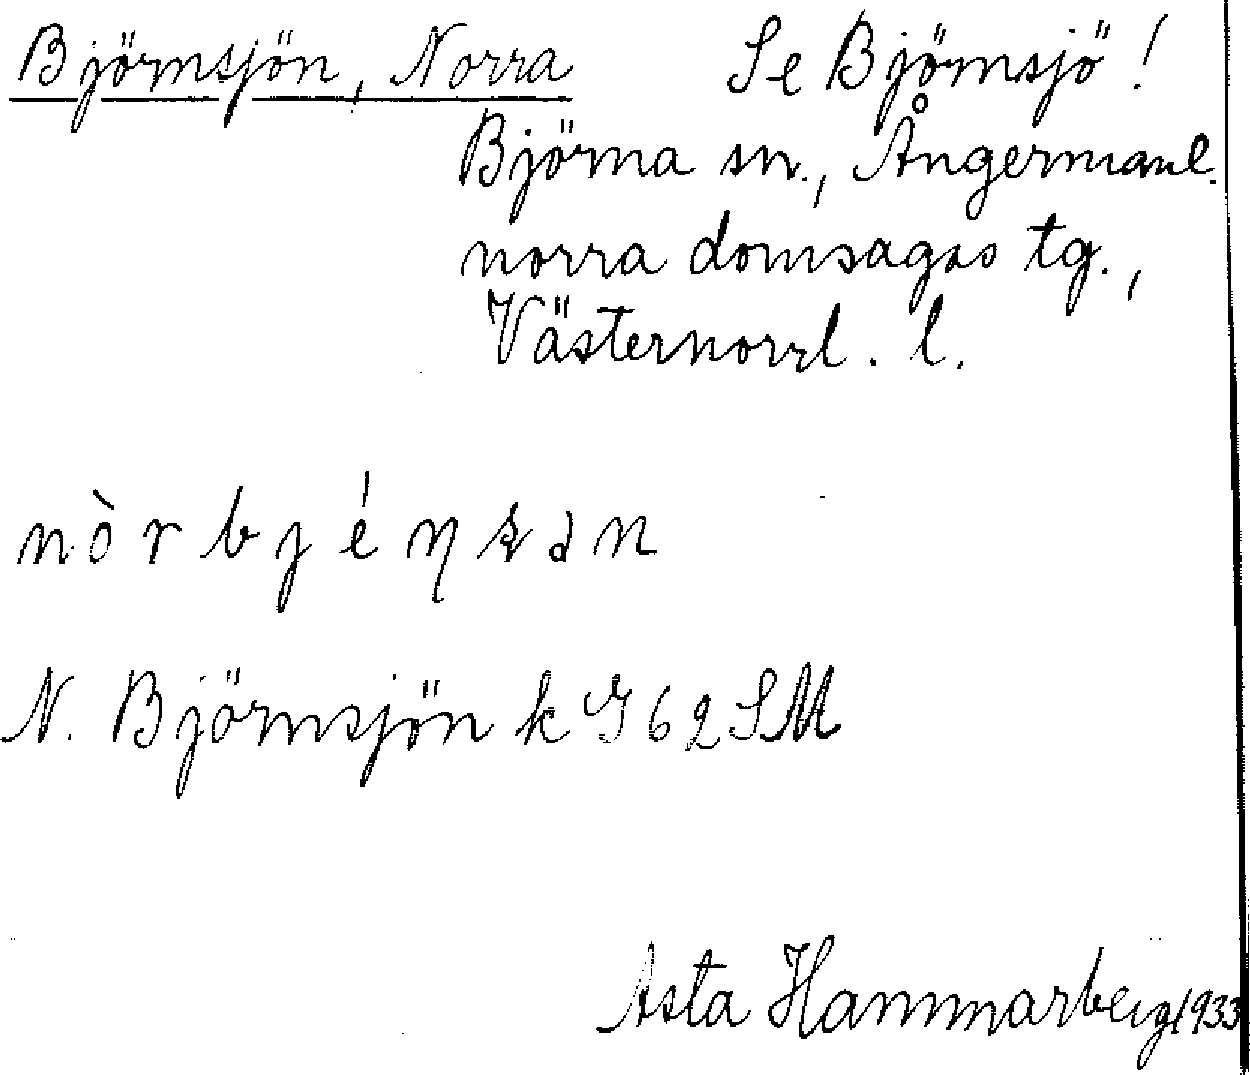 Björnsjön, Norra Se Björnsjö!
Björna sn., Ångermanl.
norra domsagas tg.,
Västernorrl. l.
N. Björnsjön k J62SM
Asta Hammarberg 1933